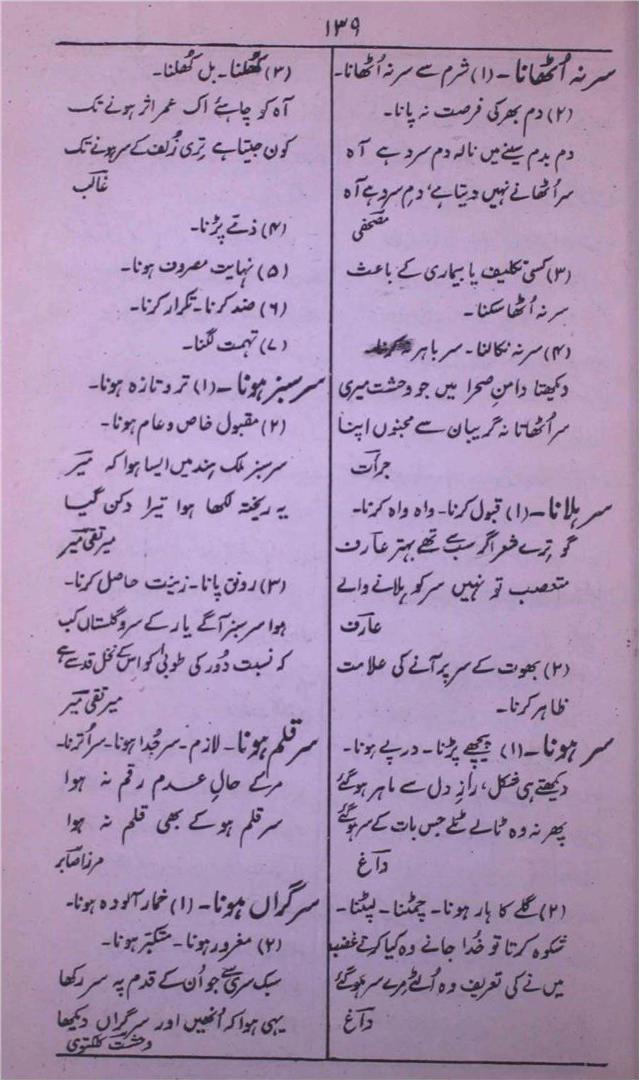 ۱۳۹
سر نہ اُٹھانا۔ (۱) شرم سے سر نہ اُٹھانا۔
(۲) دم بھر کی فرصت نہ پانا۔
دم بدم سینے میں نالہ دم سرد ہے آہ
سر اُٹھانے نہیں دیتا ہے، دمِ سرد ہے آہ
مصحفی
(۳) کسی تکلیف یا بیماری کے باعث
سر نہ اُٹھا سکنا۔
(۴) سر نہ نکالنا۔ سر باہر نہ کرنا۔
دیکھتا دامنِ صحرا میں جو وحشت میری
سر اُٹھاتا نہ گریبان سے مجنوں اپنا
جرأت
سر ہلانا۔ (۱) قبول کرنا۔ واہ واہ کرنا۔
گو تِرے شعر اگر سب سے تھے بہتر عارف
متعصب تو نہیں سر کو ہلانے والے
عارف
(۲) بھوت کے سر پر آنے کی علامت
ظاہر کرنا۔
سر ہونا۔ (۱) پیچھے پڑنا۔ درپے ہونا۔
دیکھتے ہی شکل، رازِ دل سے ماہر ہو گئے
پھر نہ وہ ٹالے ٹلے جس بات کے سر ہو گئے
داغ
(۲) گلے کا ہار ہونا۔ چمٹنا۔ لپٹنا۔
شکوہ کرتا تو خُدا جانے وہ کیا کرتے غضب
میں نے کی تعریف وہ اُلٹے مرے سر ہو گئے
داغ
(۳) کُھلنا۔ بل کُھلنا۔
آہ کو چاہئے اک عمر اثر ہونے تک
کون جیتا ہے تری زُلف کے سر ہونے تک
غالب
(۴) ذمّے پڑنا۔
(۵) نہایت مصروف ہونا۔
(۶) ضد کرنا۔ تکرار کرنا۔
(۷) تہمت لگنا۔
سرسبز ہونا۔ (۱) تر و تازہ ہونا۔
(۲) مقبول خاص و عام ہونا۔
سرسبز ملک ہند میں ایسا ہوا کہ میر
یہ ریختہ لکھا ہوا تیرا دکن گیا
میر تقی میر
(۳) رونق پانا۔ زینت حاصل کرنا۔
ہوا سرسبز آگے یار کے سرو گلستاں کب
کہ نسبت دُور کی طوبیٰ کو اس کے نخل قد سے ہے
میر تقی میر
سر قلم ہونا۔ لازم۔ سر جُدا ہونا۔ سر اُترنا۔
مر کے حالِ عدم رقم نہ ہوا
سر قلم ہو کے بھی قلم نہ ہوا
مرزا صابر
سر گراں ہونا۔ (۱) خمار آلودہ ہونا۔
(۲) مغرور ہونا۔ متکبّر ہونا۔
سبک سری سے جو اُن کے قدم پہ سر رکھا
یہی ہوا کہ اُنھیں اور سر گراں دیکھا
وحشت کلکتوی